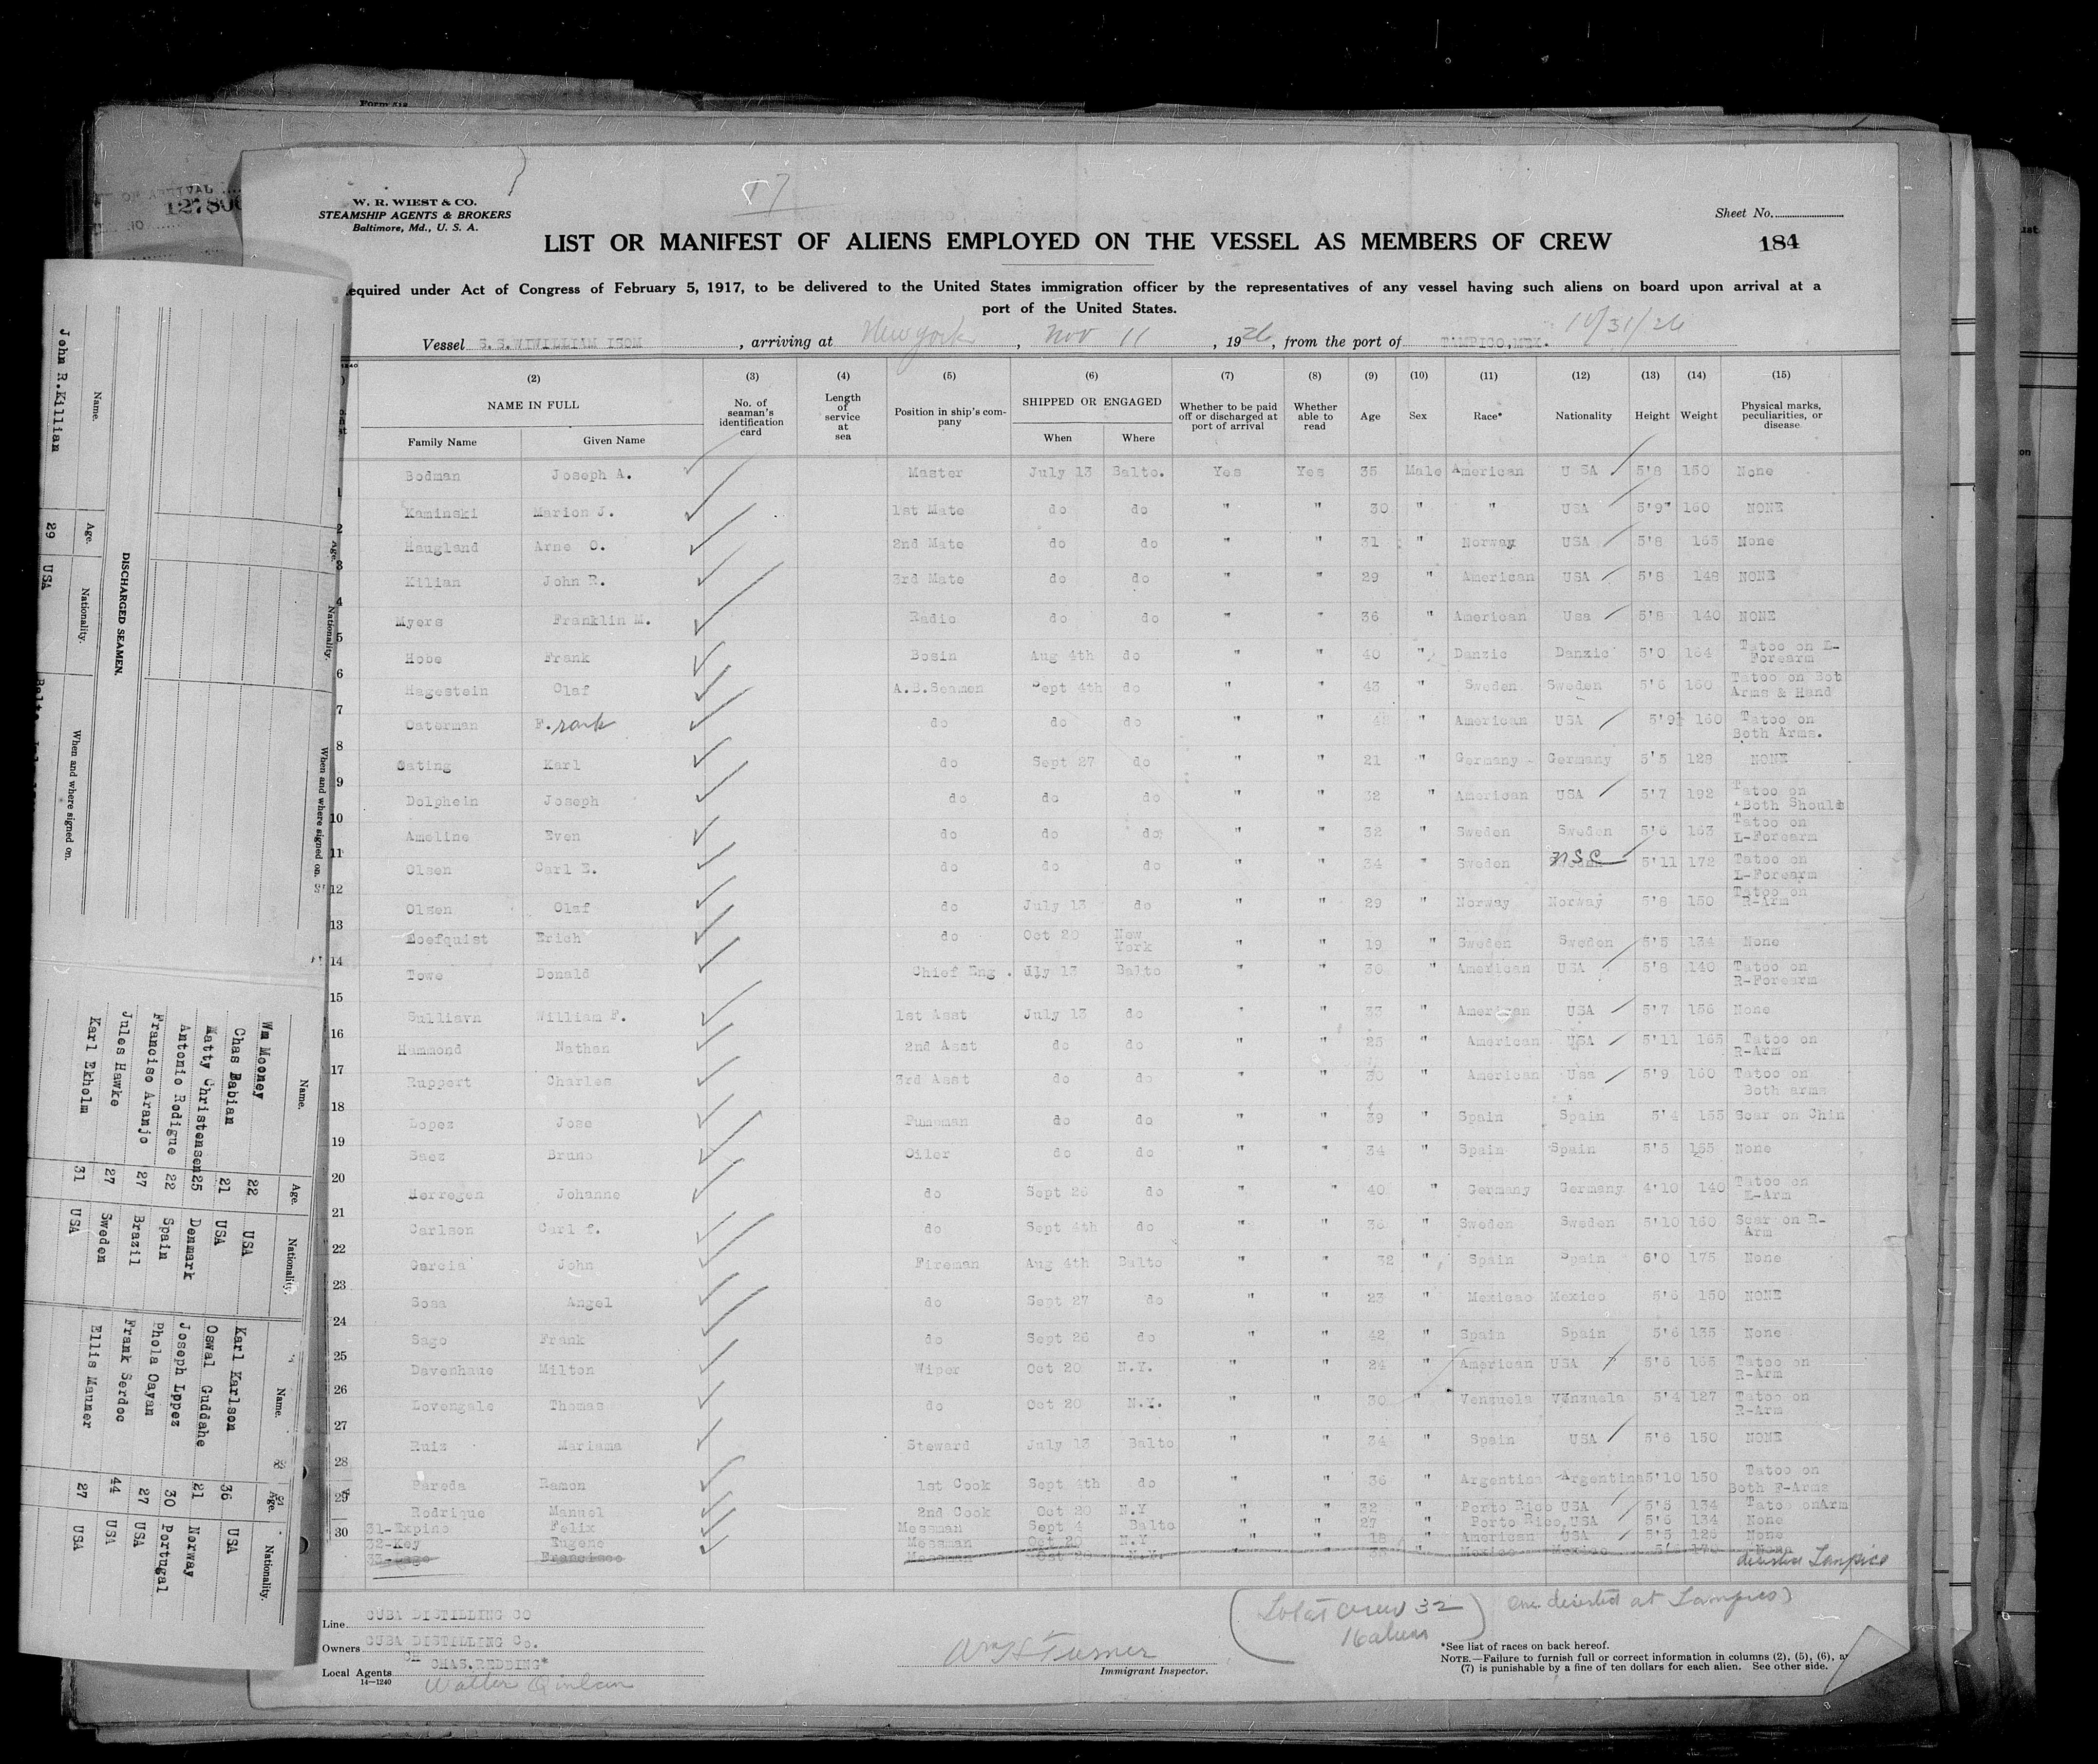 Form 518
127806
17
W. R. WIEST & CO.
STEAMSHIP AGENTS & BROKERS
Baltimore, Md., U. S. A.
Sheet No.
184
LIST OR MANIFEST OF ALIENS EMPLOYED ON THE VESSEL AS MEMBERS OF CREW
equired under Act of Congress of February 5, 1917, to be delivered to the United States immigration officer by the representatives of any vessel having such aliens on board upon arrival at a
port of the United States.
10/31/26
Vessel S.S.WIWILLIAM ISOM , arriving at New York , Nov 11 , 1926 , from the port of TAMPICO,MEX.
(2) (3) (4) (5) (6) (7) (8) (9) (10) (11) (12) (13) (14) (15)
NAME IN FULL No. of seaman's identification card Length of service at sea Position in ship's com-pany SHIPPED OR ENGAGED Whether to be paid off or discharged at port of arrival Whether able to read Age Sex Race* Nationality Height Weight Physical marks, peculiarities, or disease
Family Name Given Name When Where
Bodman Joseph A. Master July 13 Balto. Yes Yes 35 Male American U SA 5'8 150 None
1 Kaminski Marion J. 1st Mate do do " " 30 " " USA 5'9" 160 NONE
2 Haugland Arne O. 2nd Mate do do " " 31 " Norway USA 5'8 165 None
3 Kilian John R. 3rd Mate do do " " 29 " American USA 5'8 148 NONE
4 Myers Franklin M. Radio do do " " 36 " American Usa 5'8 140 NONE
5 Hobe Frank Bosin Aug 4th do " " 40 " Danzic Danzic 5'0 164 Tatoo on L-Forearm
6 Hagestein Olaf A.B.Seamen Sept 4th do " " 43 " Sweden Sweden 5'6 160 Tatoo on Bot Arms & Hand
7 Osterman F.rank do do do " " " American USA 5'9½ 160 Tatoo on Both Arms.
8 Oating Karl do Sept 27 do " " 21 " Germany Germany 5'5 128 NONE
9 Dolphein Joseph do do do " " 32 " American USA 5'7 192 Tatoo on Both Should
10 Ameline Even do do do " " 32 " Sweden Sweden 5'6 163 Tatoo on L-Forearm
11 Olsen Carl E. do do do " " 34 " Sweden USC 5'11 172 Tatoo on L-Forearm
12 Olsen Olaf do July 13 do " " 29 " Norway Norway 5'8 150 Tatoo on R-Arm
13 Loefquist Erich do Oct 20 New York " " 19 " Sweden Sweden 5'5 134 None
14 Towe Donald Chief Eng . Jly 13 Balto " " 30 " American USA 5'8 140 Tatoo on R-Forearm
15 Sulliavn William F. 1st Asst July 13 do " " 33 " American USA 5'7 156 None
16 Hammond Nathan 2nd Asst do do " " 25 " American USA 5'11 165 Tatoo on R-Arm
17 Ruppert Charles 3rd Asst do do " " 30 " American Usa 5'9 160 Tatoo on Both arms
18 Lopez Jose Pumpman do do " " 39 " Spain Spain 5'4 155 Scar on Chin
19 Saez Bruno Oiler do do " " 34 " Spain Spain 5'5 155 None
20 Herregen Johanne do Sept 26 do " " 40 " Germany Germany 4'10 140 Tatoo on L-Arm
21 Carlson Carl f. do Sept 4th do " " 36 " Sweden Sweden 5'10 160 Scar on R-Arm
22 Garcia John Fireman Aug 4th Balto " " 32 " Spain Spain 6'0 175 None
23 Sosa Angel do Sept 27 do " " 23 " Mexicao Mexico 5'6 150 NONE
24 Sago Frank do Sept 26 do " " 42 " Spain Spain 5'6 135 None
25 Davenhaue Milton Wiper Oct 20 N.Y. " " 24 " American USA 5'6 165 Tatoo on R-Arm
26 Lovengale Thomas do Oct 20 N.Y. " " 30 " Venzuela Venzuela 5'4 127 Tatoo on R-Arm
27 Ruiz Mariama Steward July 13 Balto " " 34 " Spain USA 5'6 150 NONE
28 Pareda Ramon 1st Cook Sept 4th do " " 36 " Argentina Argentina 5'10 150 Tatoo on Both F-Arms
29 Rodrique Manuel 2nd Cook Oct 20 N.Y " " 32 " Porto Rico USA 5'5 134 Tatoo onArm
30 31-Expino Felix Messman Sept 4 Balto " " 27 " Porto Rico,USA 5'6 134 None
32-Key Eugene Messman Oct 20 N.Y " " 18 " American USA 5'5 126 None
33-Sago Francisco Messman Oct 20 N.Y. " " 35 " Mexico Mexico None
deserted Tampico
Line CUBA DISTILLING CO
Owners CUBA DISTILLING Co.
CH CHAS.REDDING*
Local Agents Walter Quinlan
14—1240
Wm H Turner
Immigrant Inspector.
(Total crew 32
16 aliens)
One deserted at Tampico)
*See list of races on back hereof.
NOTE.—Failure to furnish full or correct information in columns (2), (5), (6), a
(7) is punishable by a fine of ten dollars for each alien. See other side.
DISCHARGED SEAMEN.
Name. Age. Nationality. When and where signed on.
John R.Killian 29 USA
Age. Nationality. When and where signed on.
Name. Age. Nationality. Name. Age. Nationality.
Wm Mooney 22 USA Karl Karlson 36 USA
Chas Babian 21 USA Oswal Guddahe 21 Norway
Matty Christensen 25 Denmark Joseph Lppez 30 Portugal
Antonio Rodigue 22 Spain Phola Cayan 27 USA
Franciso Aranjo 27 Brazil Frank Serdoc 44 USA
Jules Hawke 27 Sweden Ellis Mauner 27 USA
Karl Ekholm 31 USA